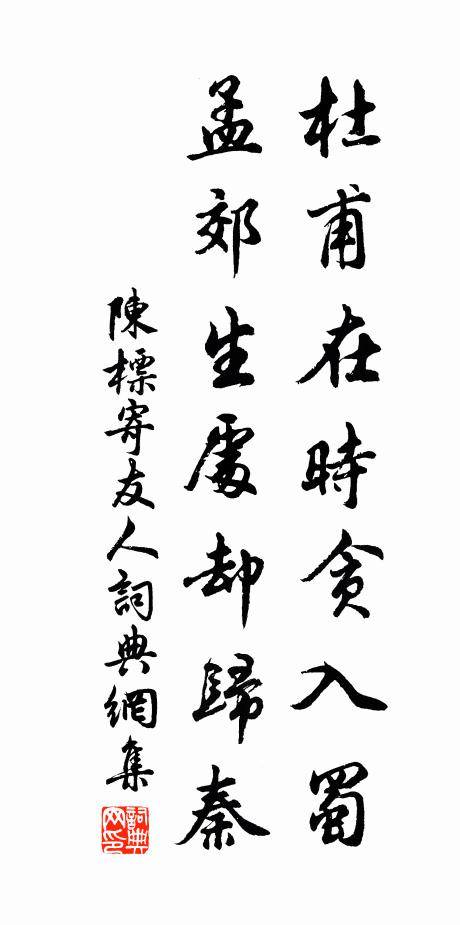 杜甫在時貪入蜀
孟郊生處却歸秦
陳標寄友人詞典網集
詞典
网印